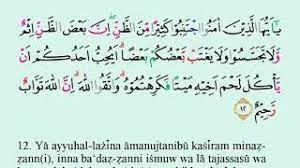 يٰٓاَيُّهَا الَّذِيْنَ اٰمَنُوا اجْتَنِبُوْا كَثِيْرًا مِّنَ الظَّنِّۖ اِنَّ بَعْضَ الظَّنِّ اِثْمٌ
وَّلَا تَجَسَّسُوْا وَلَا يَغْتَبْ بَّعْضُكُمْ بَعْضًاۗ اَيُحِبُّ اَحَدُكُمْ اَنْ
يَّأْكُلَ لَحْمَ اَخِيْهِ مَيْتًا فَكَرِهْتُمُوْهُۗ وَاتَّقُوا اللّٰهَۗ اِنَّ اللّٰهَ تَوَّابٌ
رَّحِيْمٌ ١٢
12. Yā ayyuhal-lażīna āmanujtanibū kaṡīram minaẓ-
ẓann(i), inna ba‘ḍaẓ-ẓanni iṡmuw wa lā tajassasū wa